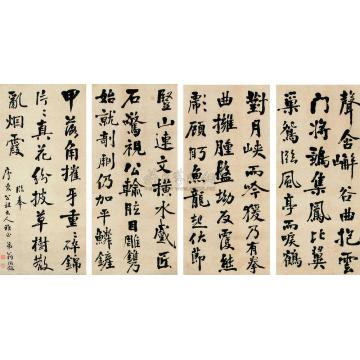 聲含嶰谷曲抱雲
門將鶵集鳳比翼
巢鴛臨風亭而唳鶴
對月峽而吟猨乃有拳
曲擁腫盤坳反覆熊
彪顧盼魚龍起伏節
豎山連文橫水蹙匠
石驚視公輸眩目雕鐫
始就剞劂仍加平鱗鏟
甲落角摧牙重重碎錦
片片真花紛披草樹散
亂烟霞